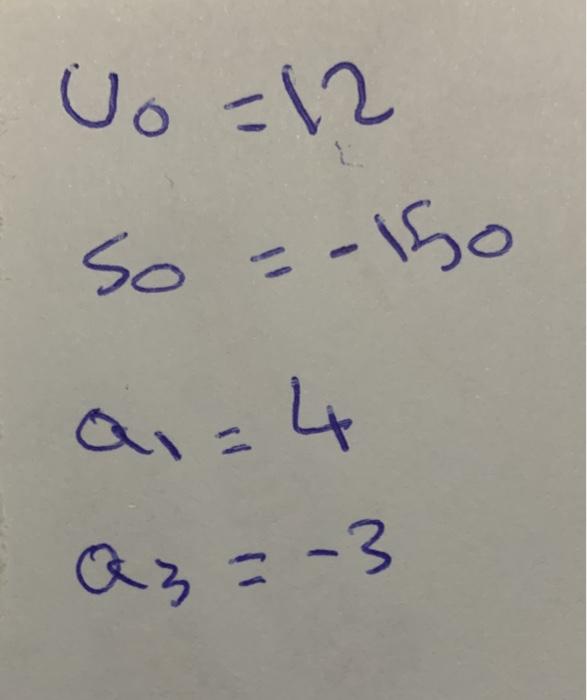 U0 = 12
S0 = -150
a1 = 4
a3 = -3